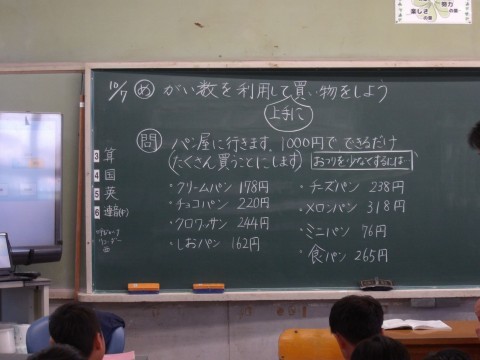 努力
楽しさ
10/7 め がい数を利用して買い物をしよう
上手に
問 パン屋に行きます。1000円で できるだけ
(たくさん買うことにします) おつりを少なくするには…
・クリームパン 178円
・チョコパン 220円
・クロワッサン 244円
・しおパン 162円
・チーズパン 238円
・メロンパン 318円
・ミニパン 76円
・食パン 265円
3 算
4 国
5 英
6 連音(火)